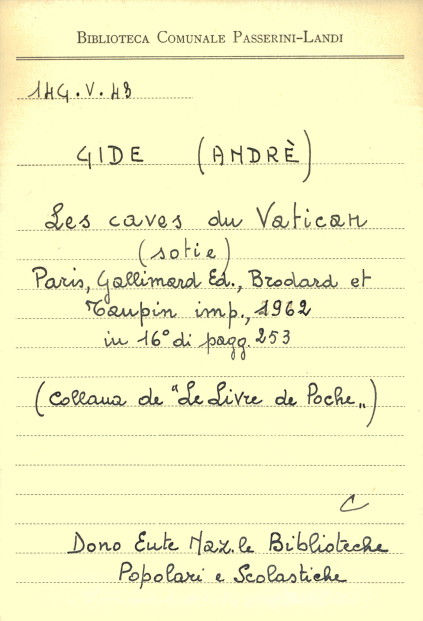 BIBLIOTECA COMUNALE PASSERINI-LANDI
14G.V.43
GIDE (ANDRÈ)
Les caves du Vatican
(sotie)
Paris, Gallimard Ed., Brodard et
Taupin imp., 1962
in 16° di pagg. 253
(Collana de "Le Livre de Poche„)
C
Dono Ente Naz.le Biblioteche
Popolari e Scolastiche